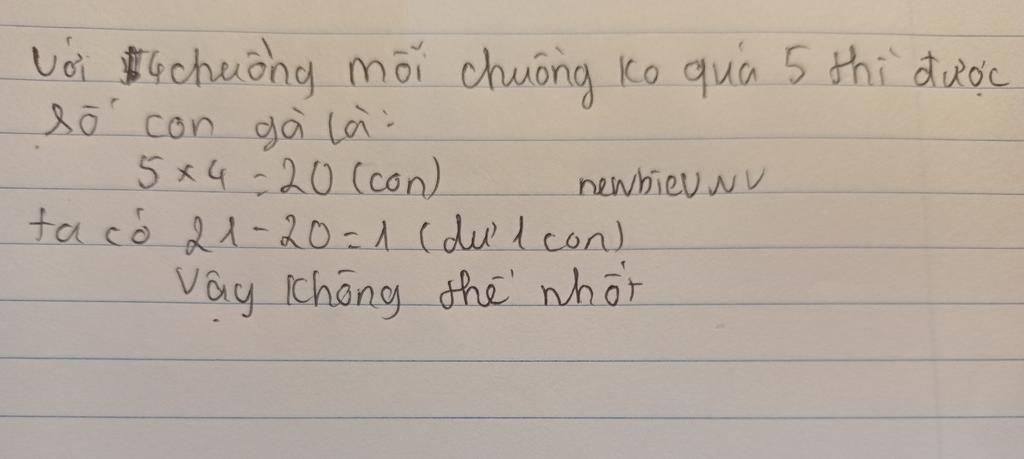 Với 4 chuồng mỗi chuồng ko quá 5 thì được
số con gà là:
5 x 4 = 20 (con)
newbieUNU
ta có 21 - 20 = 1 (dư 1 con)
Vậy không thể nhốt